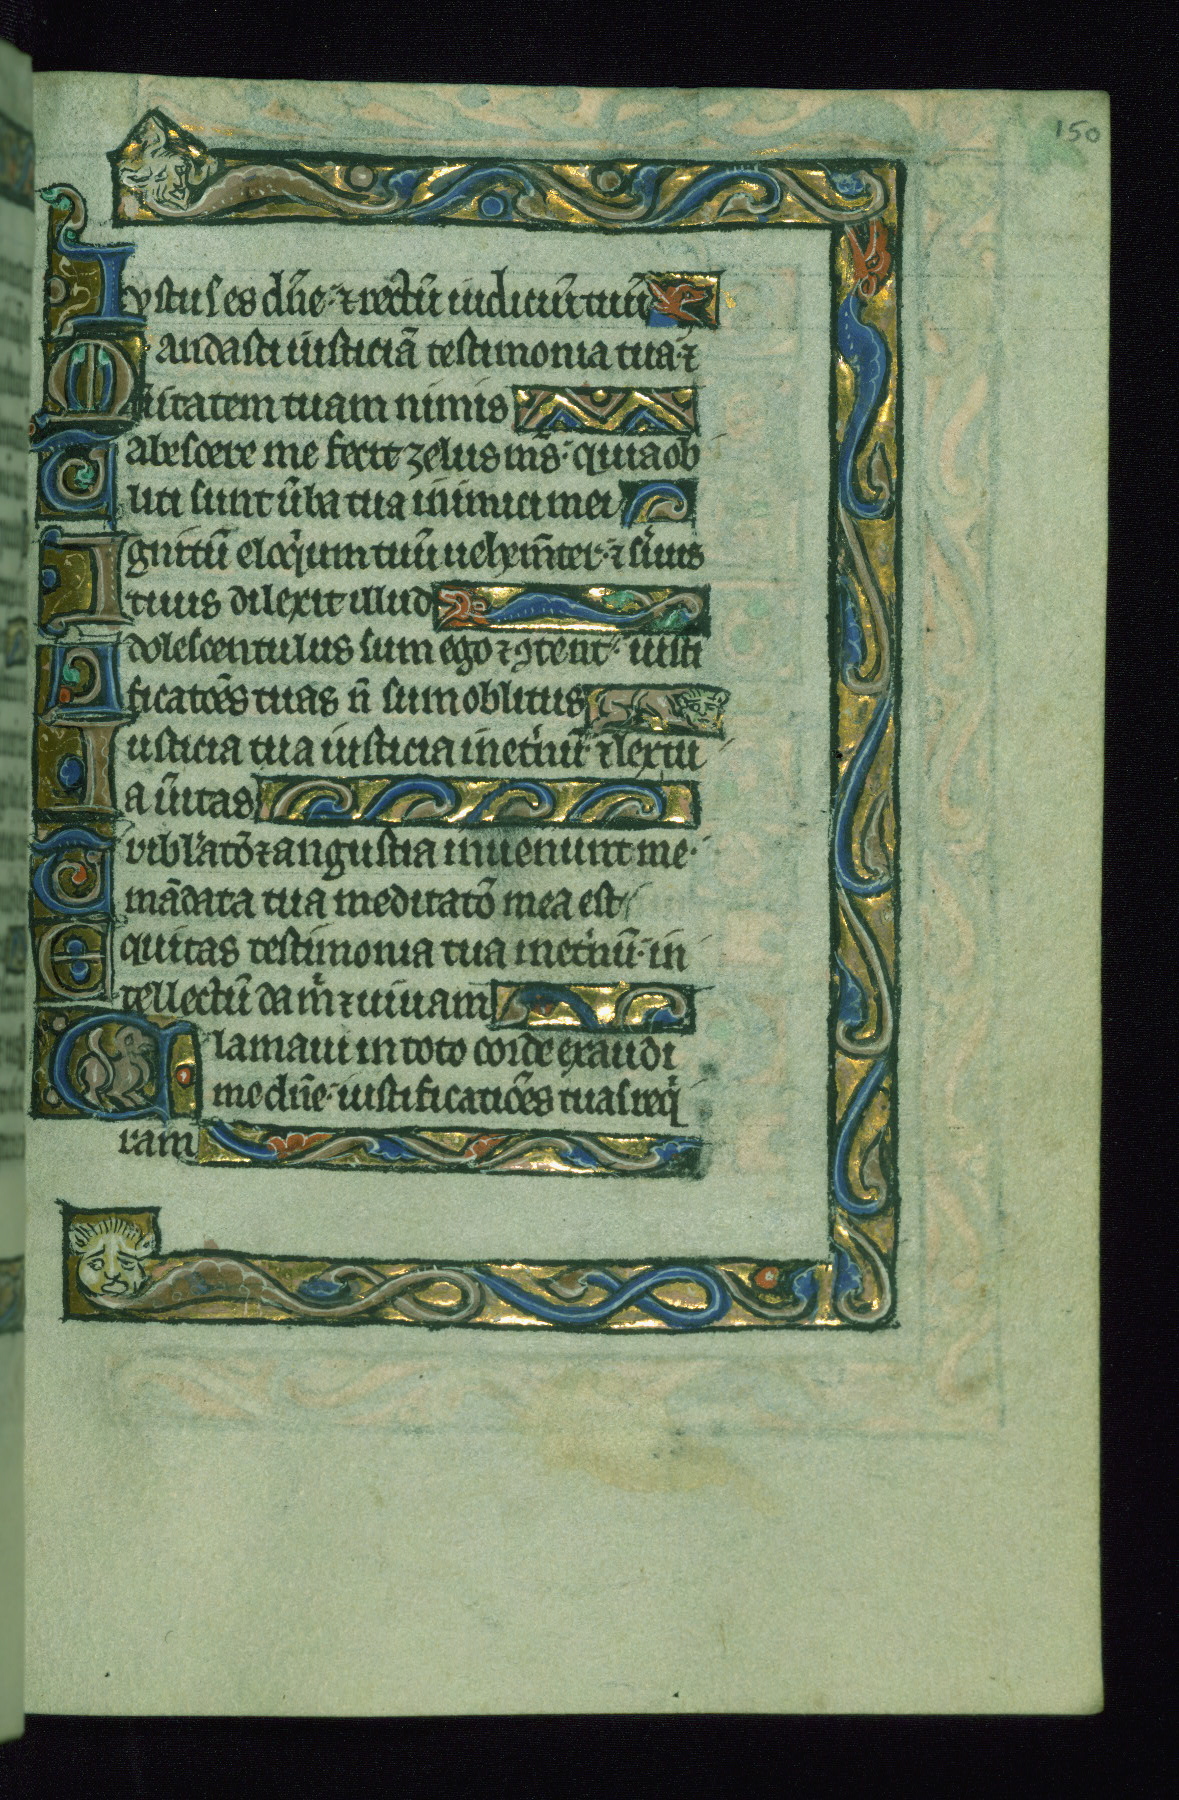 150
Iustus es dn̄e· ⁊ rectū iudiciū tuū
Mandasti iusticiā testimonia tua· ⁊
ūitatem tuam nimis
Tabescere me fecit zelus m̄s· quia ob
liti sunt ūba tua inimici mei
Ignitū eloq̇um tuū uehem̄ter· ⁊ s̓uus
tuus dilexit illud
Adolescentulus sum ego ⁊ ꝯtent᷒· iusti
ficatōes tuas n̄ sum oblitus
Iusticia tua iusticia inet̓nū· ⁊ lex tu
a ūitas
Tribl̓atō ⁊ angustia inuenunt me·
mādata tua meditatō mea est
Equitas testimonia tua inet̓nū· in
tellectū da m̓ ⁊ uiuam
Clamaui in toto corde exaudi
me dn̄e· iustificatiōes tuas req̇
ram